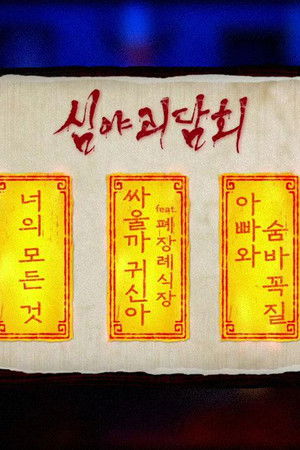 심야괴담회
너의 모든 것
싸울까 귀신아
feat. 폐장례식장
아빠와
숨바꼭질